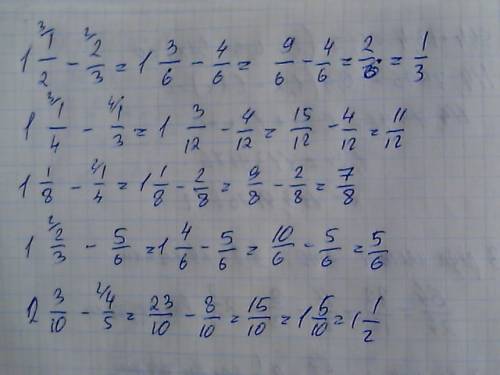 1 ³⁄1/2 - ²⁄2/3 = 1 3/6 - 4/6 = 9/6 - 4/6 = 2/6 = 1/3
1 ³⁄1/4 - ⁴⁄1/3 = 1 3/12 - 4/12 = 15/12 - 4/12 = 11/12
1 1/8 - ²⁄1/4 = 1 1/8 - 2/8 = 9/8 - 2/8 = 7/8
1 ²⁄2/3 - 5/6 = 1 4/6 - 5/6 = 10/6 - 5/6 = 5/6
2 3/10 - ²⁄4/5 = 23/10 - 8/10 = 15/10 = 1 5/10 = 1 1/2